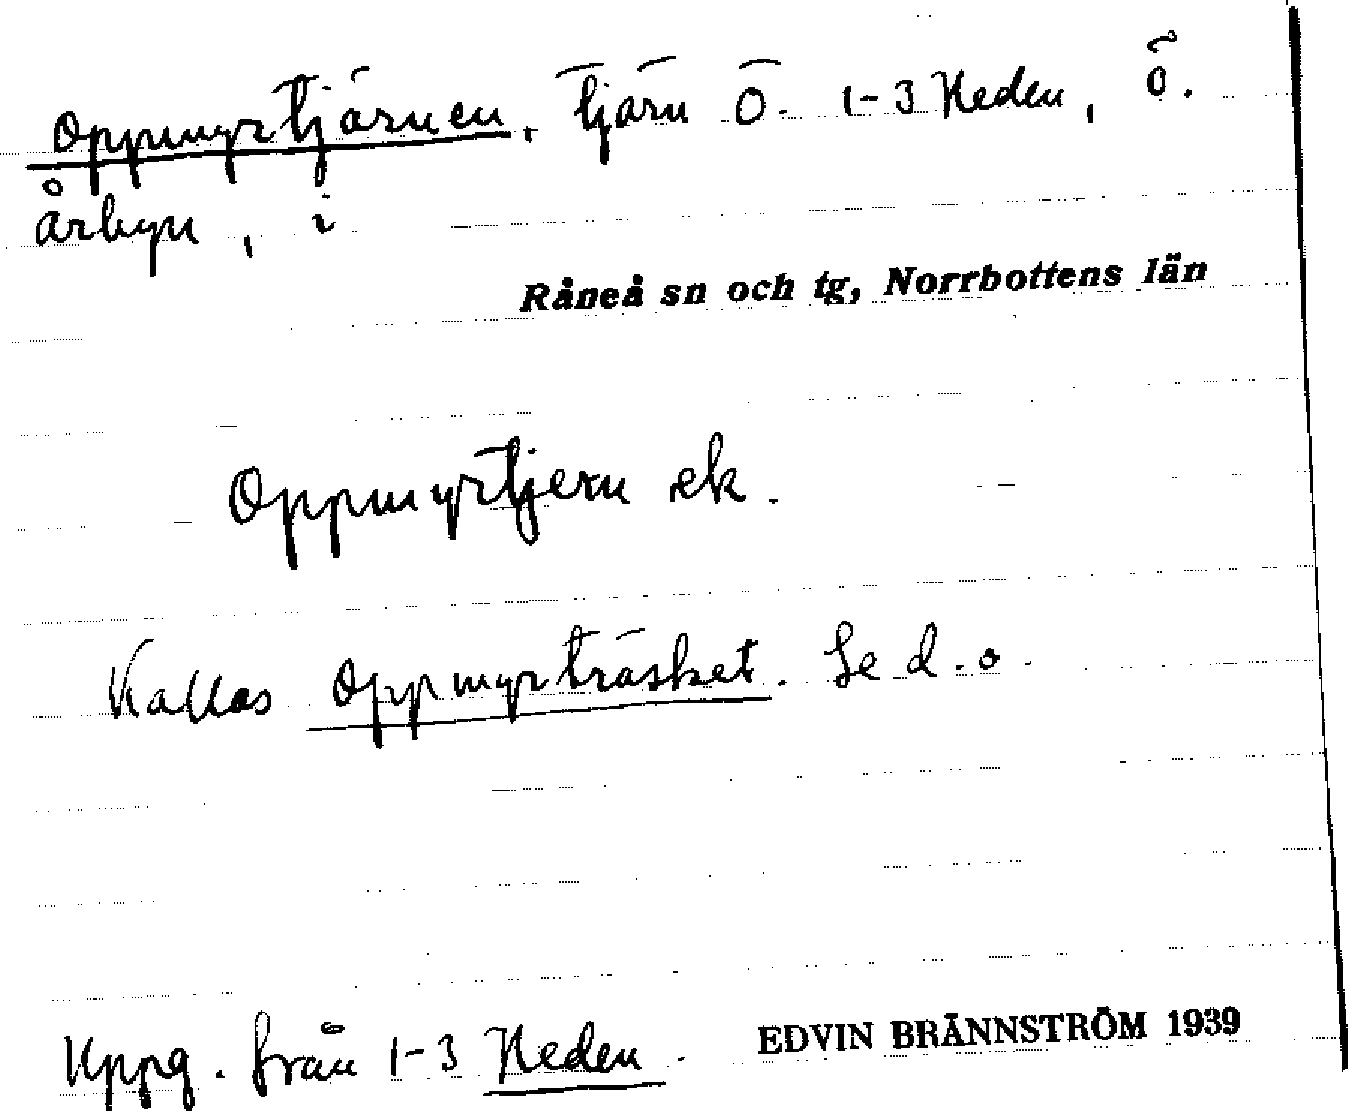 Oppmyrtjärnen, tjärn Ö. 1-3 Heden, ö.
Årbyn, i
Råneå sn och tg, Norrbottens län
Oppmyrtjern ek.
Kallas Oppmyrträsket. Se d.o.
Uppg. från 1-3 Heden.
EDVIN BRÄNNSTRÖM 1939